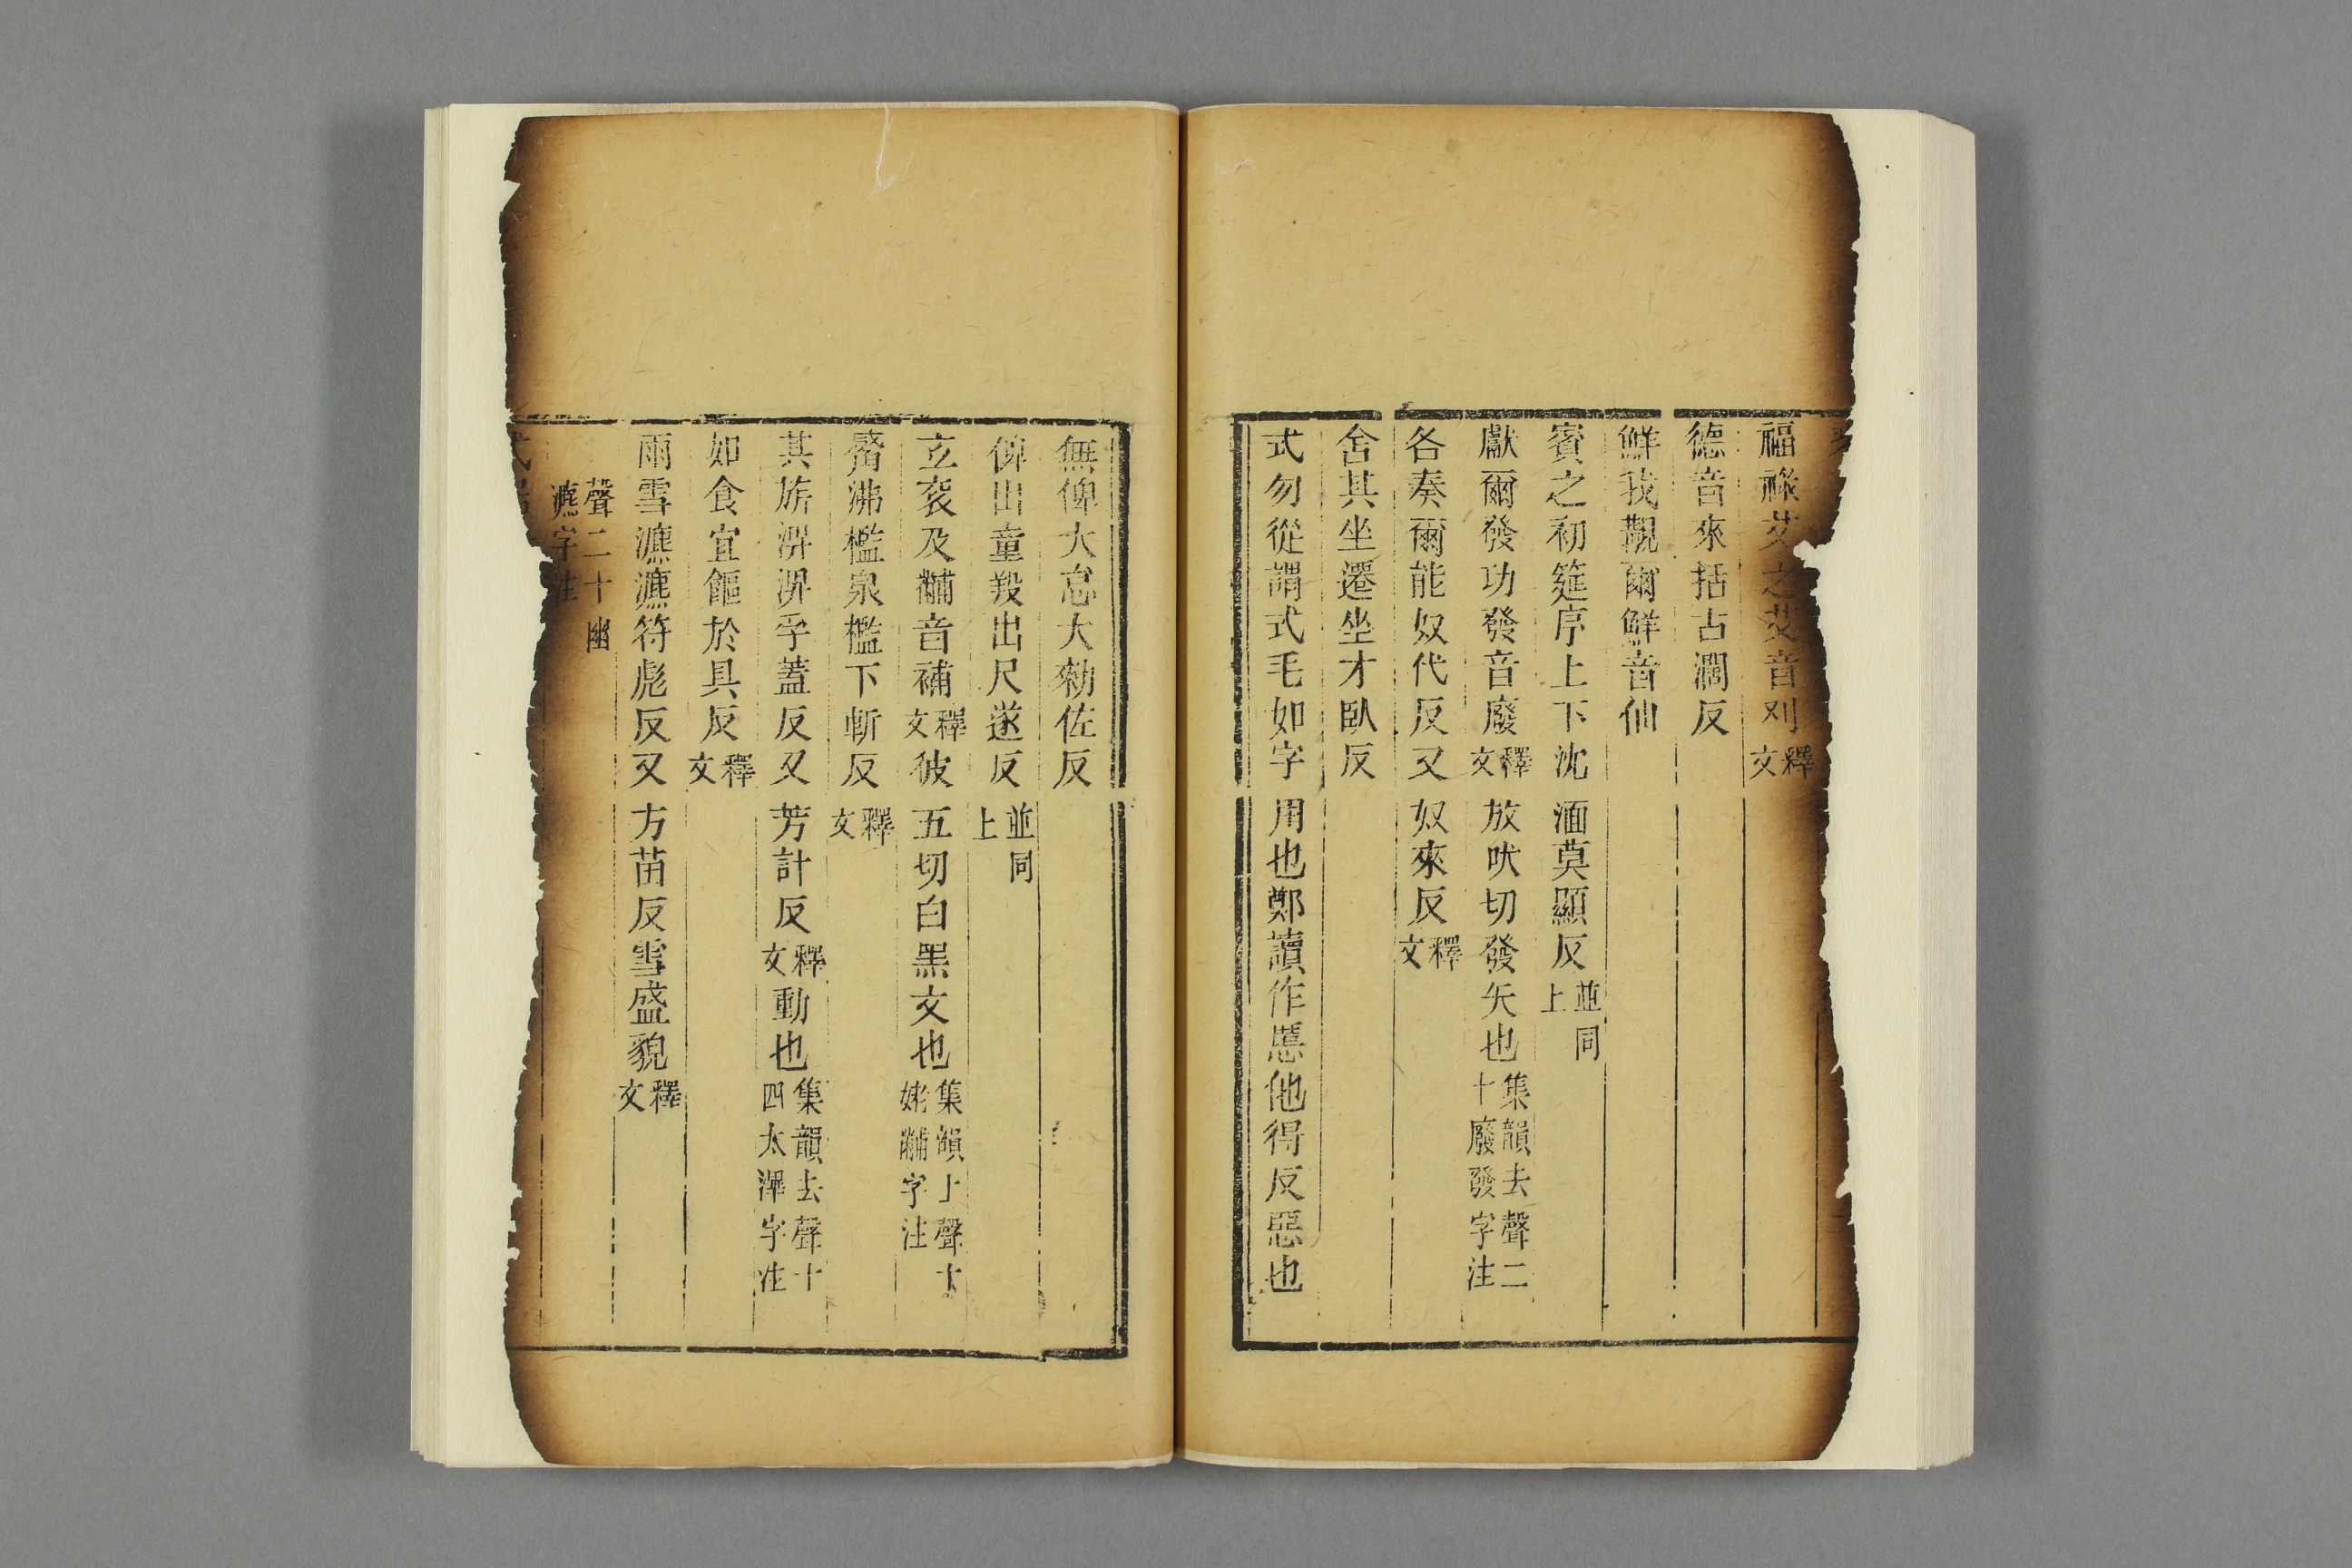 福祿艾之艾音刈釋文
德音來括古濶反
鮮我覯爾鮮音仙
賓之初筵序上下沈湎莫顯反並同上
獻爾發功發音廢釋文放吠切發矢也集韻去聲二十廢發字注
各奏爾能奴代反又奴來反釋文
舍其坐遷坐才臥反
式勿從謂式毛如字用也鄭讀作慝他得反惡也
無俾大怠大勑佐反
俾出童羖出尺遂反並同上
玄衮及黼音補釋文彼五切白黑文也集韻上聲十姥黼字注
觱沸檻泉檻下斬反釋文
其旂淠淠孚蓋反又芳計反釋文動也集韻去聲十四太淠字注
如食宜饇於具反釋文
雨雪瀌瀌符彪反又方苗反雪盛貌釋文
聲二十幽瀌字注